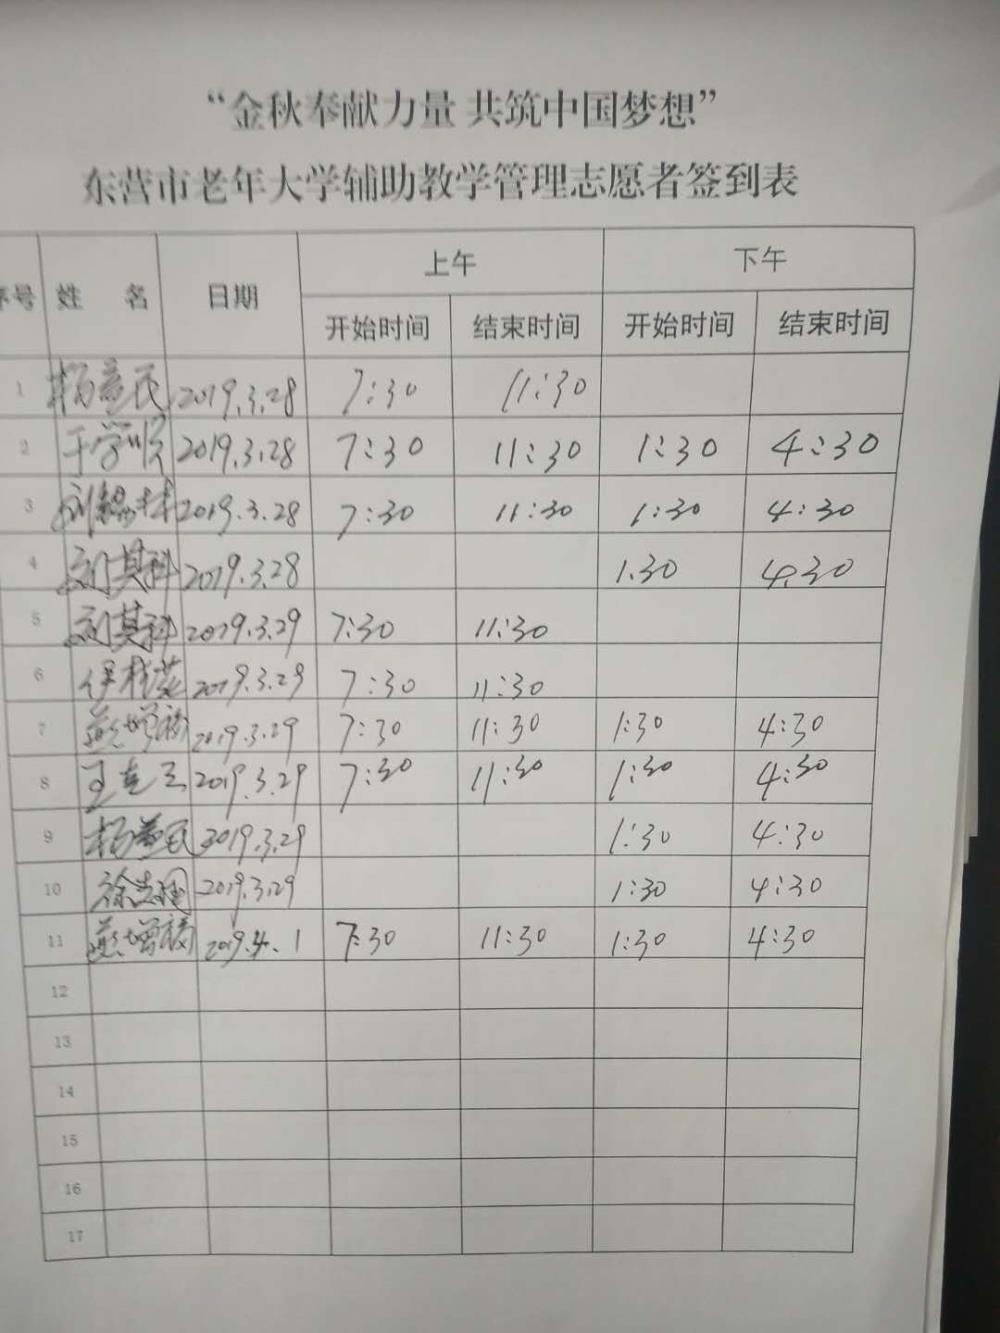 “金秋奉献力量 共筑中国梦想”
东营市老年大学辅助教学管理志愿者签到表
序号 姓 名 日期 上午 下午
开始时间 结束时间 开始时间 结束时间
1 杨益民 2019.3.28 7:30 11:30
2 于学顺 2019.3.28 7:30 11:30 1:30 4:30
3 2019.3.28 7:30 11:30 1:30 4:30
4 刘其科 2019.3.28 1.30 4.30
5 刘其科 2019.3.29 7:30 11:30
6 2019.3.29 7:30 11:30
7 燕增福 2019.3.29 7:30 11:30 1:30 4:30
8 2019.3.29 7:30 11:30 1:30 4:30
9 杨益民 2019.3.29 1:30 4:30
10 2019.3.29 1:30 4:30
11 燕增福 2019.4.1 7:30 11:30 1:30 4:30
12
13
14
15
16
17